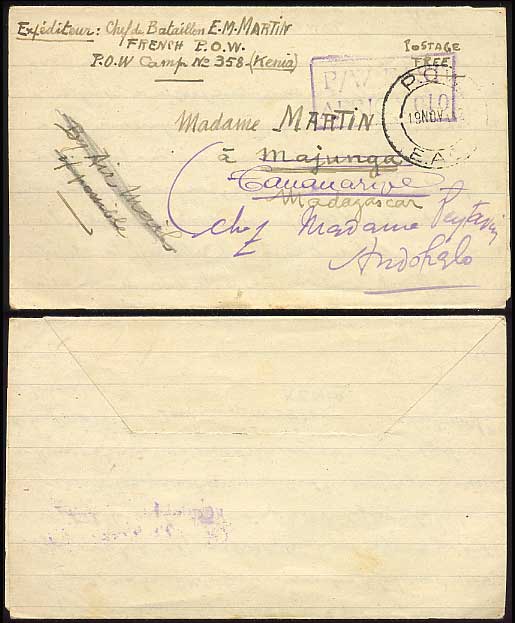 Expéditeur: Chef de Bataillon E.M. MARTIN
FRENCH P.O.W.
P.O.W Camp No 358-(Kenia)
POSTAGE
FREE.
P/W
P.O.W
19 NOV
E.A.
Madame MARTIN
à Majunga
Tananarive
Madagascar
chez Madame Peytavin
Andohalo
By Air Mail
if possible